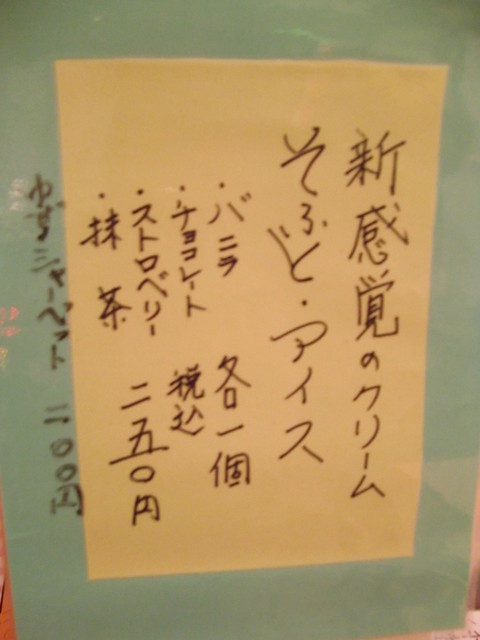 新感覚のクリーム
そふど・アイス
・バニラ 各一個
・チョコレート 税込
・ストロベリー 二五〇円
・抹茶
ゆずシャーベット 二〇〇円